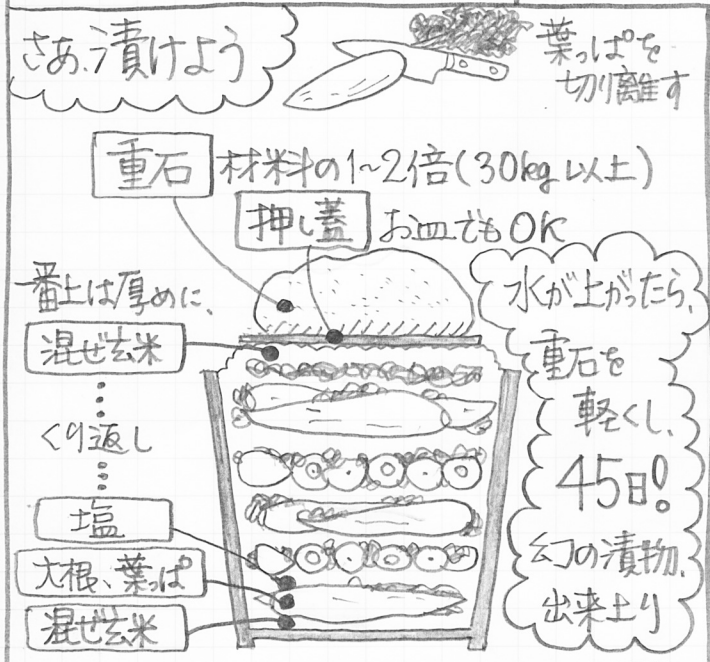 さあ、漬けよう
葉っぱを
切り離す
重石 材料の1~2倍(30kg以上)
押し蓋 お皿でもOK
一番上は厚めに、
混ぜ玄米
くり返し
塩
大根、葉っぱ
混ぜ玄米
水が上がったら、
重石を
軽くし、
45日!
幻の漬物、
出来上り